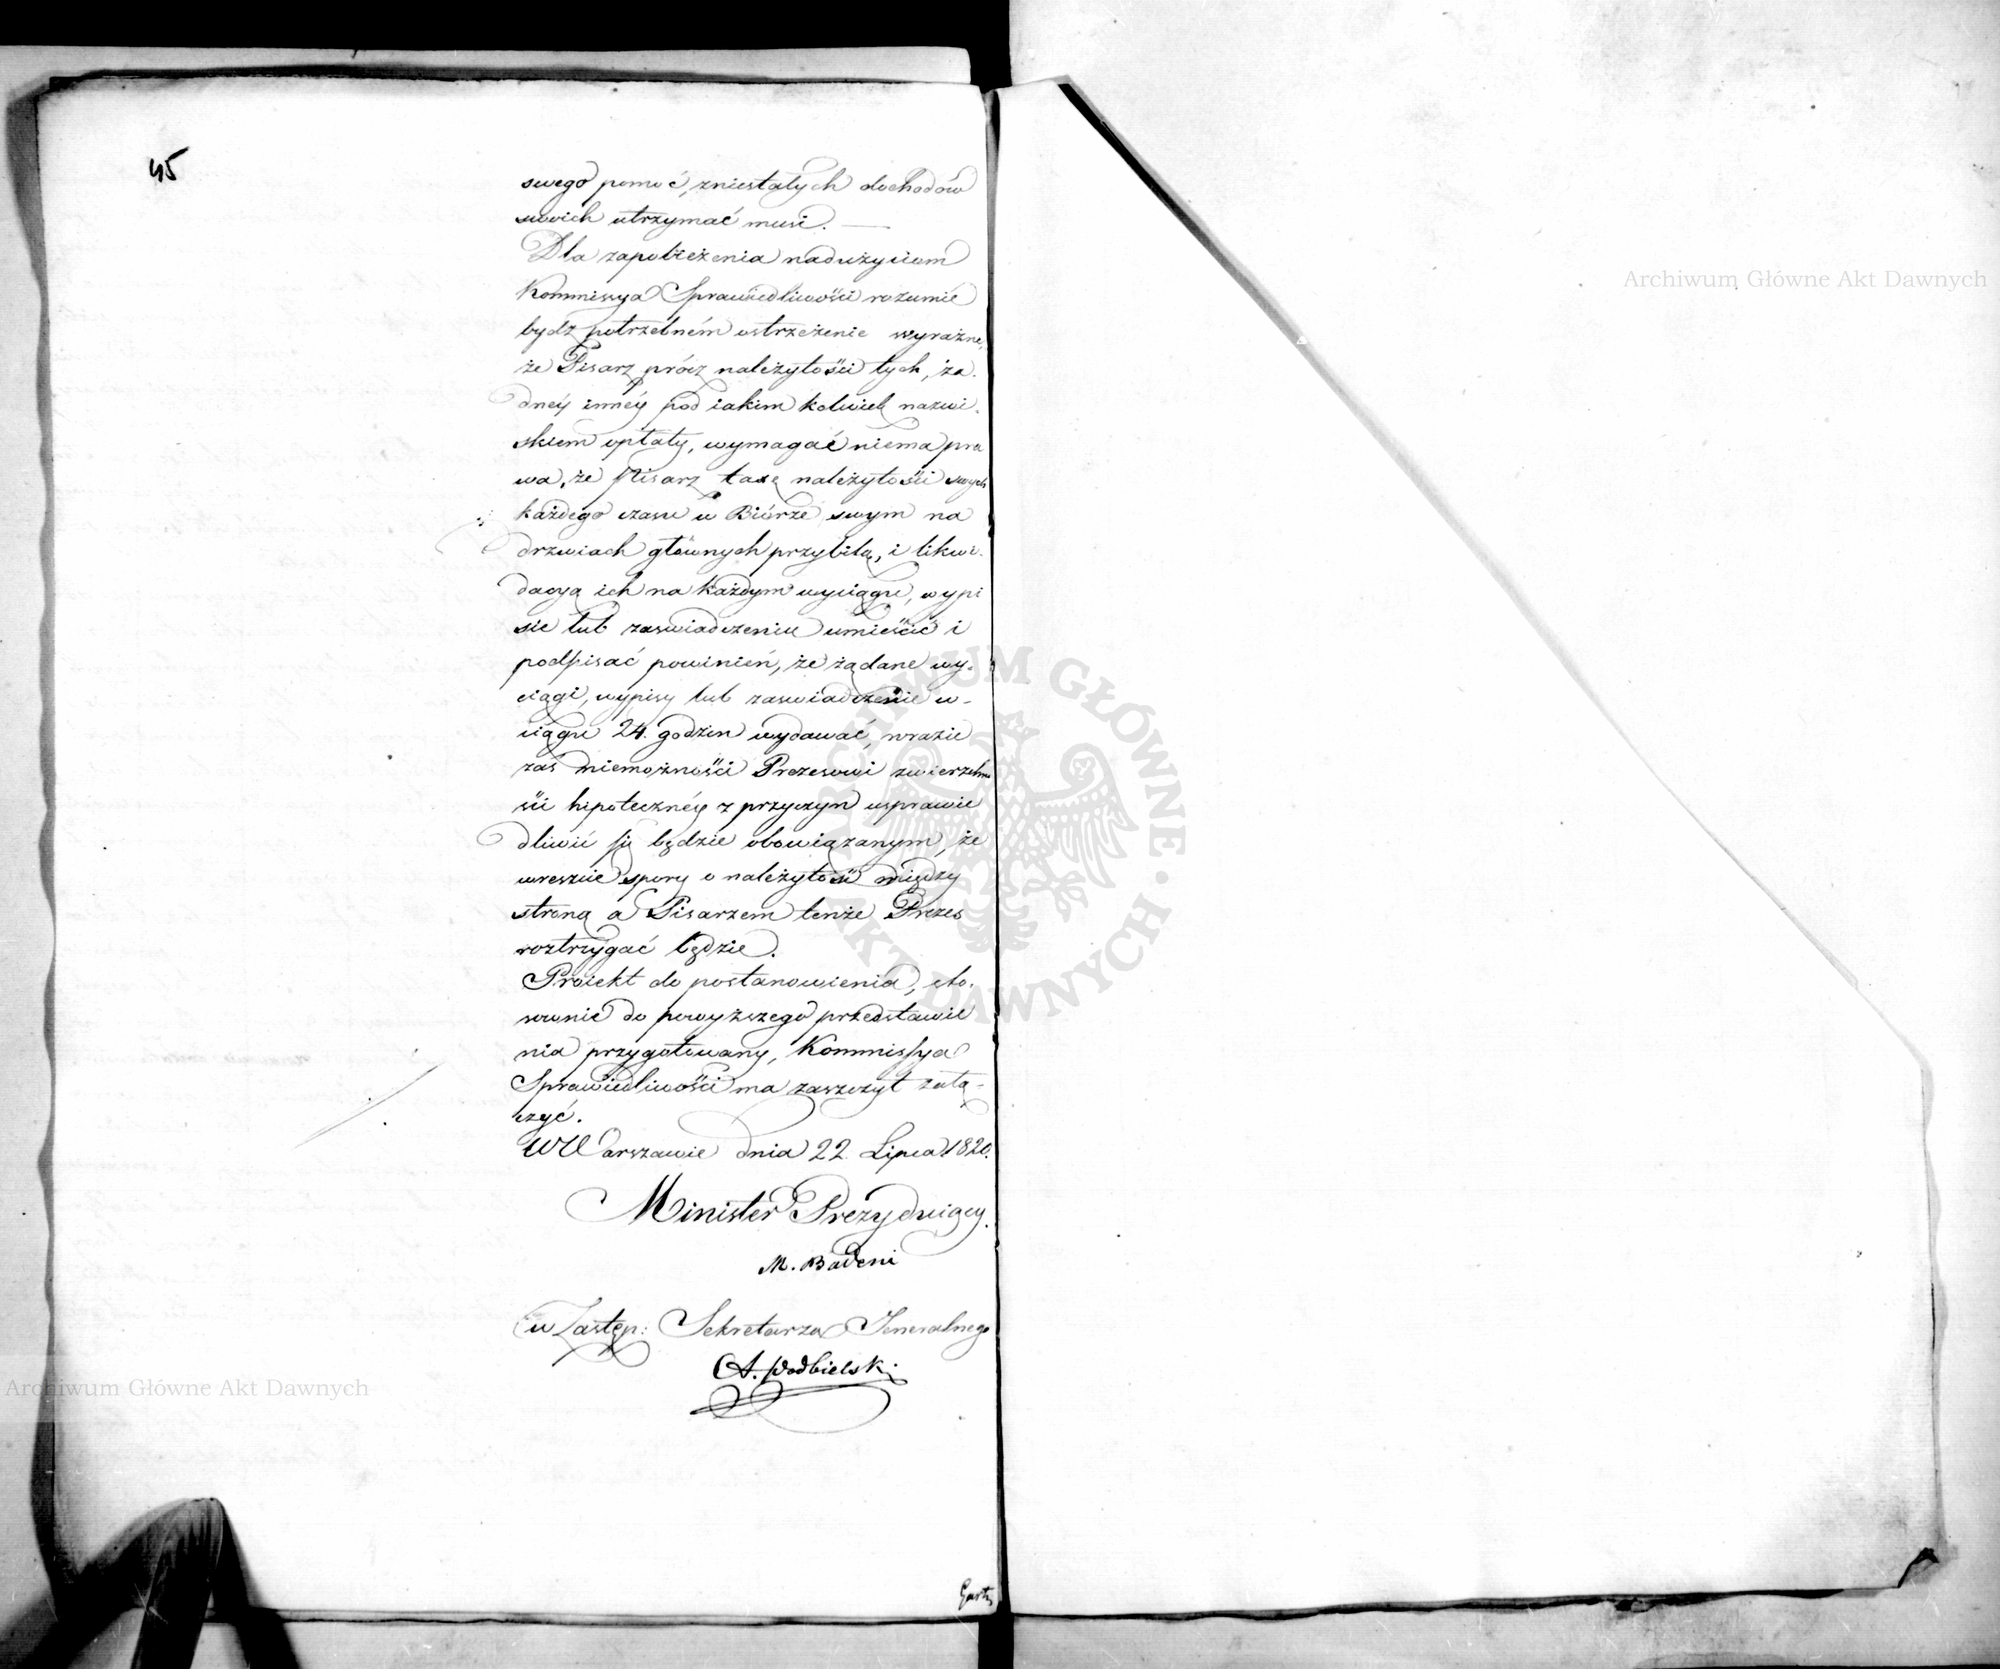 45
swego pomoć, zniestałych dochodów
swoich utrzymać musi. —
Dla zapobieżenia nadużyciom
Kommissya Sprawiedliwości rozumie
bydz potrzebném ostrzeżenie wyraźne,
że Pisarz prócz należytości tych, ża-
dnéy innéy pod iakim kolwiek nazwi-
skiem opłaty, wymagać niema pra
wa, że Pisarz taxę należytości swych
każdego czasu w Biórze swym na
drzwiach głównych przybitą, i likwi-
dacyą ich na każdym wyciągu, wypi
sie lub zaswiadczeniu umieścić i
podpisać powinień, że żądane wy-
ciągi, wypisy lub zaswiadczenie w-
ciągu 24. godzin wydawać, wrazie
zas niemożności Prezesowi zwierzchno
ści hipotecznéy z przyczyn usprawie
dliwić się będzie obowiązanym, że
wreszcie spory o należytość między
stroną a Pisarzem tenże Prezes
roztrzygać będzie.
Proiekt do postanowienia, sto-
sownie do powyższego przedstawie
nia przygotowany, Kommissya
Sprawiedliwości ma zaszczyt załą-
czyć.
W Warszawie dnia 22. Lipca 1820.
Minister Prezyduiący.
M. Badeni
w Zastęp: Sekretarza Jeneralnego
A. Podbielski
Archiwum Główne Akt Dawnych
Archiwum Główne Akt Dawnych
ARCHIWUM GŁÓWNE · AKT DAWNYCH ·